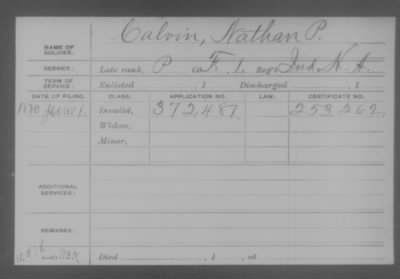 Calvin, Nathan P.
NAME OF SOLDIER:
SERVICE: Late rank, P Co. F, 1, Reg't Ind. H. A.
TERM OF SERVICE: Enlisted , 1 Discharged , 1
DATE OF FILING. CLASS. APPLICATION NO. LAW. CERTIFICATE NO.
1880 June 1. Invalid, 372,487. 253,262.
Widow,
Minor,
ADDITIONAL SERVICES:
REMARKS.
Died , 1 , at